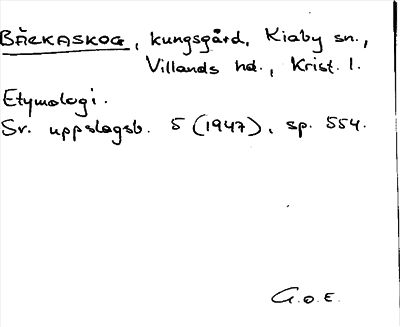 BÄCKASKOG, kungsgård, Kiaby sn.,
Villands hd., Krist. l.
Etymologi.
Sv. uppslagsb. 5 (1947), sp. 554.
G.O.E.